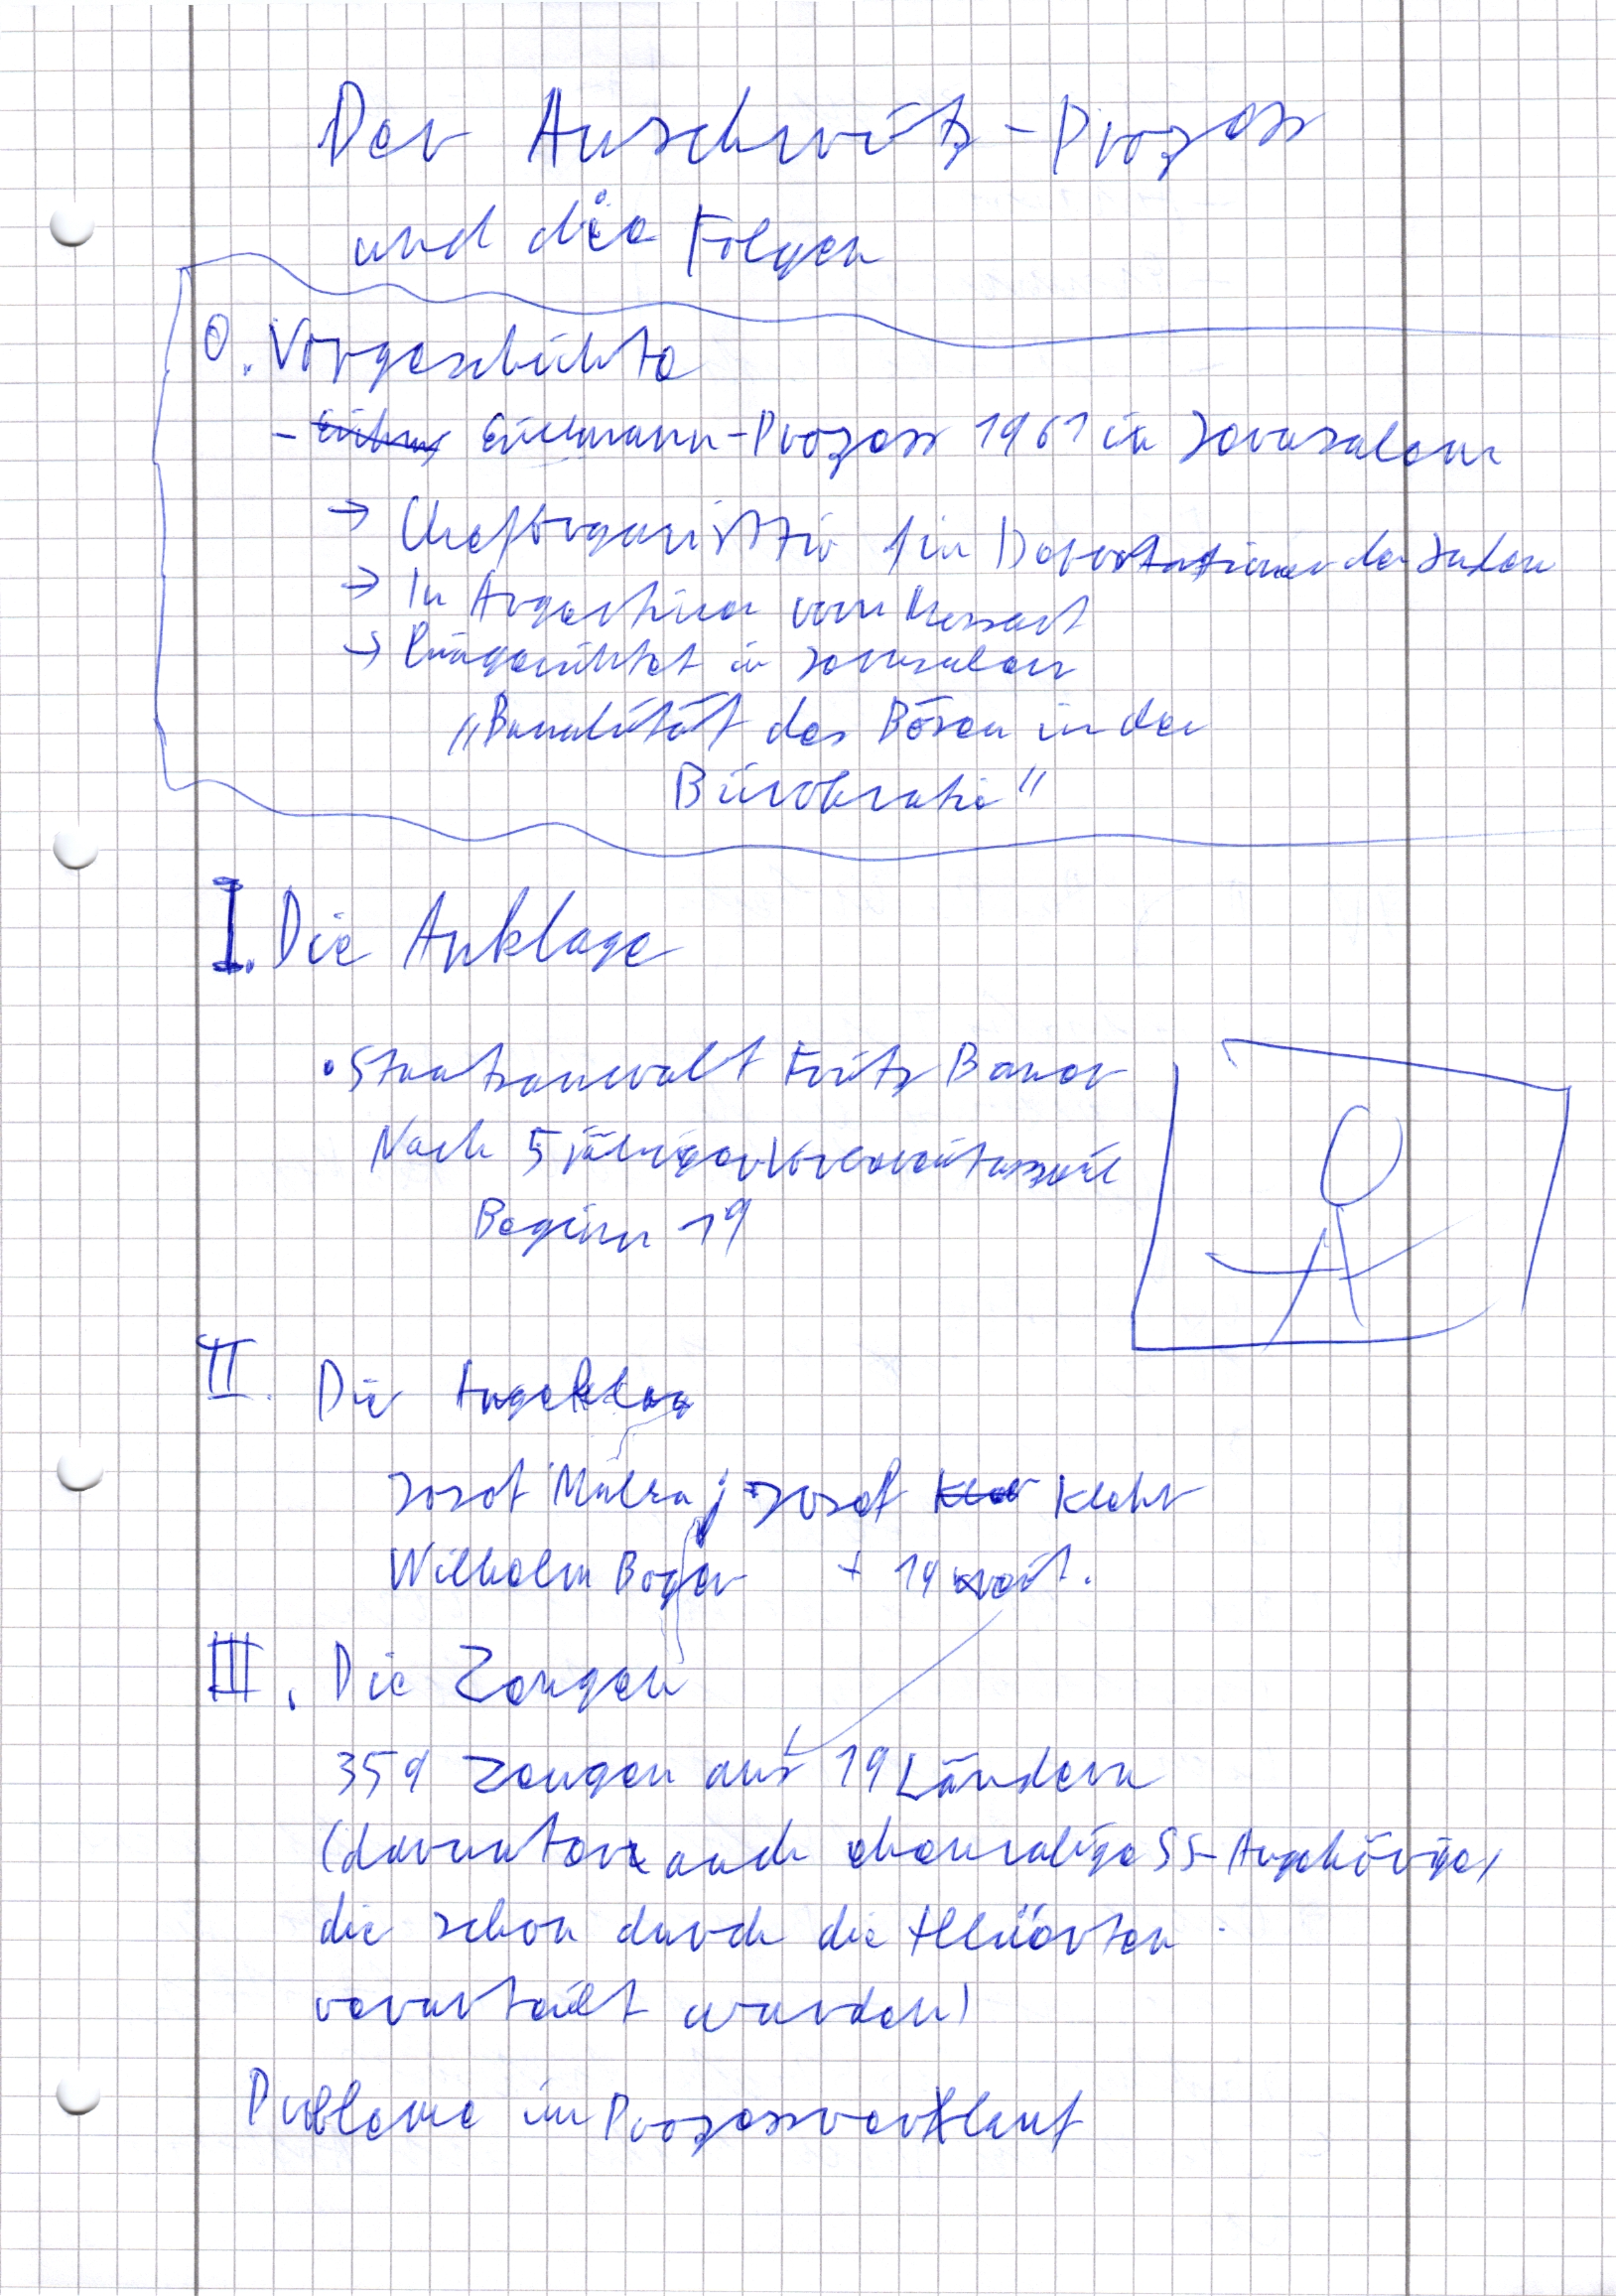 Der Auschwitz-Prozess
und die Folgen
0. Vorgeschichte
- Eichmann-Prozess 1961 in Jerusalem
→ Cheforganisator für Deportationen der Juden
→ In Argentinien vom Mossad
→ Hingerichtet in Jerusalem
"Banalität des Bösen in der
Bürokratie"
I. Die Anklage
• Staatsanwalt Fritz Bauer
Nach 5 jähriger Vorbereitungszeit
Beginn 19
II. Die
Josef Mulka; Josef Klehr
Wilhelm Boger + 14 weit.
III. Die Zeugen
359 Zeugen aus 19 Ländern
(darunter auch ehemalige SS-Angehörige,
die schon durch die Alliierten
verurteilt wurden)
Probleme im Prozessverlauf